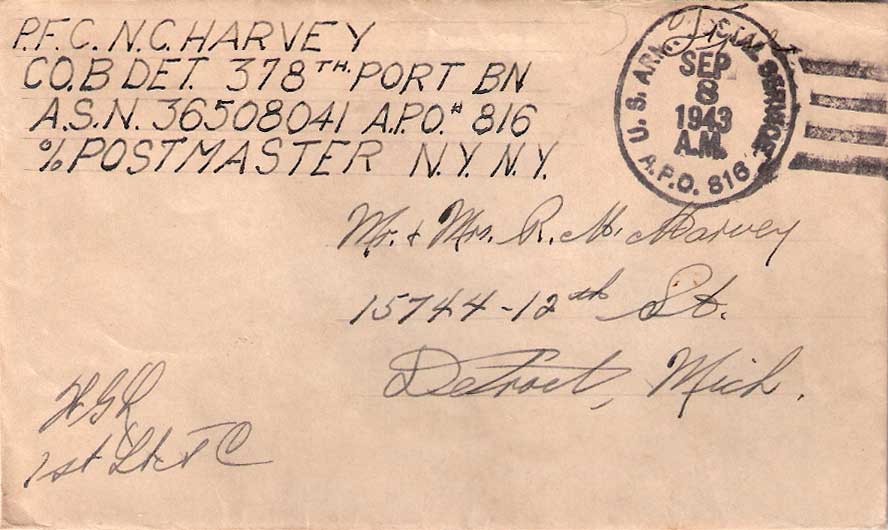 P.F.C. N.C. HARVEY
CO. B DET. 378TH. PORT BN
A.S.N. 36508041 A.P.O.# 816
% POSTMASTER N.Y. N.Y.
U. S. ARMY POSTAL SERVICE
SEP
8
1943
A.M.
A.P.O. 816
Mr. + Mrs. R. M. Harvey
15744-12th St.
Detroit, Mich.
1st Lt. T C